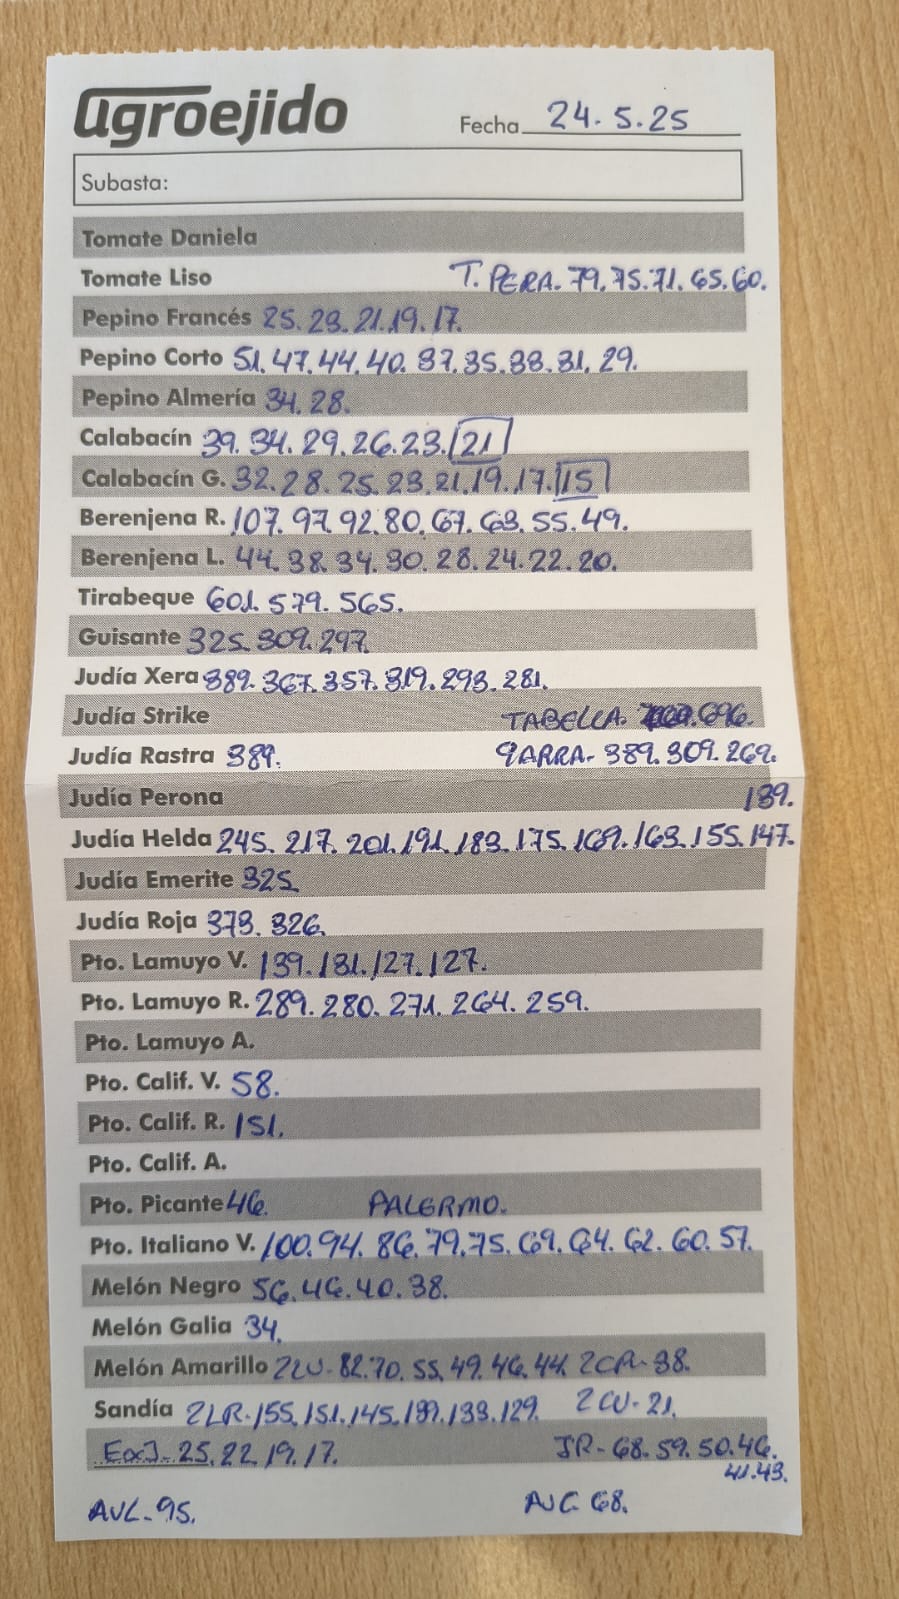 agroejido
Fecha 24.5.25
Subasta:
Tomate Daniela
Tomate Liso T. PERA. 79. 75. 71. 65. 60.
Pepino Francés 25. 23. 21. 19. 17.
Pepino Corto 51. 47. 44. 40. 37. 35. 33. 31. 29.
Pepino Almería 34. 28.
Calabacín 39. 34. 29. 26. 23. 21
Calabacín G. 32. 28. 25. 23. 21. 19. 17. 15
Berenjena R. 107. 97. 92. 80. 67. 63. 55. 49.
Berenjena L. 44. 38. 34. 30. 28. 24. 22. 20.
Tirabeque 601. 579. 565.
Guisante 325. 309. 297.
Judía Xera 389. 367. 357. 319. 293. 281.
Judía Strike TABELLA. 696.
Judía Rastra 389. GARRA- 389. 309. 269.
Judía Perona 139.
Judía Helda 245. 217. 201. 191. 183. 175. 169. 163. 155. 147.
Judía Emerite 325
Judía Roja 373. 326.
Pto. Lamuyo V. 139. 131. 127. 127.
Pto. Lamuyo R. 289. 280. 271. 264. 259.
Pto. Lamuyo A.
Pto. Calif. V. 58.
Pto. Calif. R. 151.
Pto. Calif. A.
Pto. Picante 46. PALERMO.
Pto. Italiano V. 100. 94. 86. 79. 75. 69. 64. 62. 60. 57.
Melón Negro 56. 46. 40. 38.
Melón Galia 34.
Melón Amarillo 82. 70. 55. 49. 46. 44. 38.
Sandía 155. 151. 145. 139. 133. 129. 21.
25. 22. 19. 17. 68. 59. 50. 46.
41. 43.
95. 68.